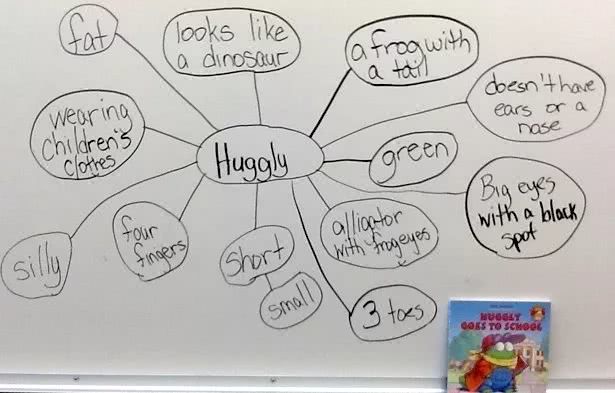 fat
looks like
a dinosaur
a frog with
a tail
doesn't have
ears or a
nose
wearing
children's
clothes
Huggly
green
Big eyes
with a black
spot
silly
four
fingers
short
small
alligator
with frog eyes
3 toes
HUGGLY
GOES TO SCHOOL